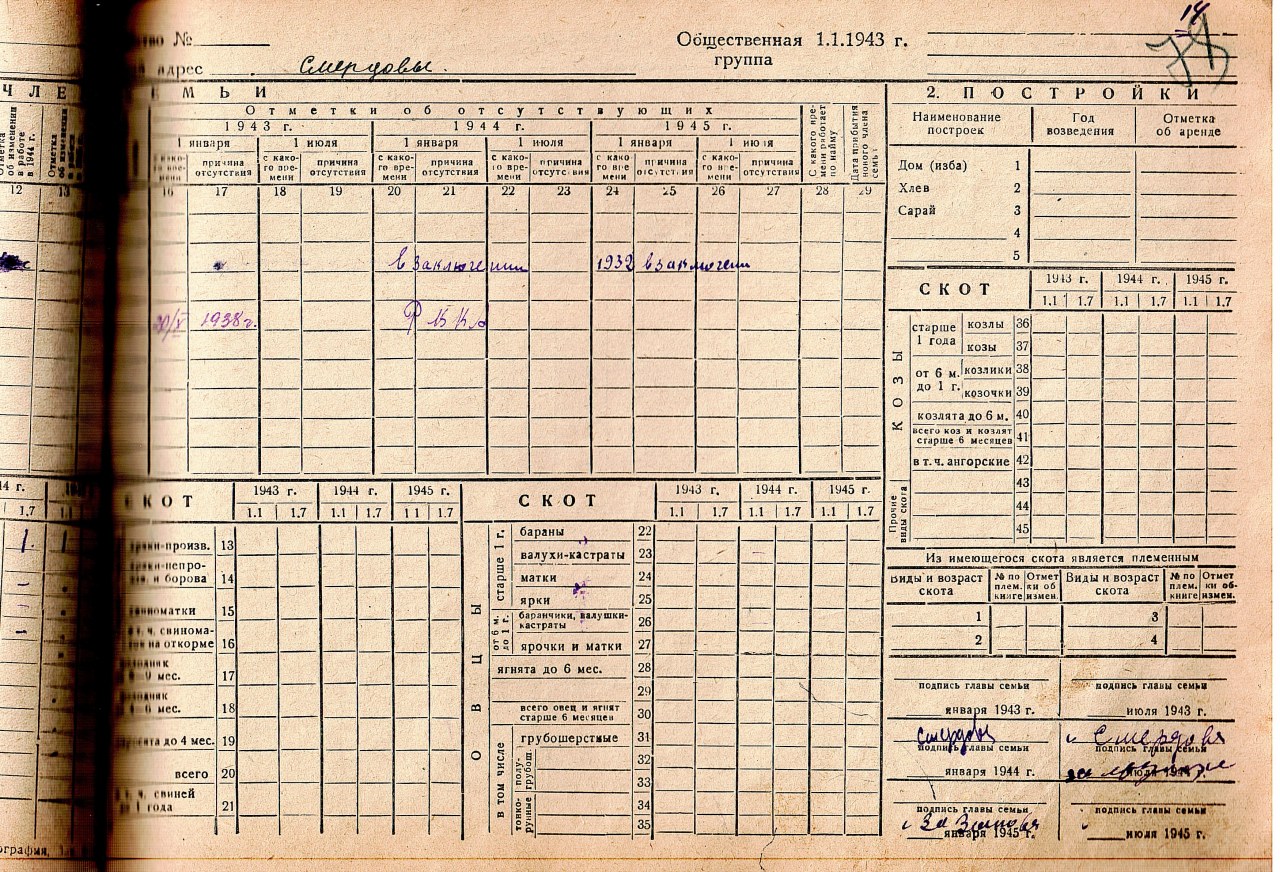 14
78
№
Общественная 1.1.1943 г.
группа
адрес Смердовы.
ЧЛЕ
МЬИ
Отметки об отсутствующих
1943 г. 1944 г. 1945 г.
1 января 1 июля 1 января 1 июля 1 января 1 июля
причина отсутствия
с како-го вре-мени причина отсутствия
с како-го вре-мени причина отсутствия
с како-го вре-мени причина отсутствия
с како-го вре-мени причина отсутствия
с како-го вре-мени причина отсутствия
С какого вре-мени работает по найму
Дата прибытия нового члена семьи
12 13 16 17 18 19 20 21 22 23 24 25 26 27 28 29
в заключении 1932 в заключении
1938 г. РККА
2. ПОСТРОЙКИ
Наименование построек Год возведения Отметка об аренде
Дом (изба) 1
Хлев 2
Сарай 3
4
5
СКОТ 1943 г. 1944 г. 1945 г.
1.1 1.7 1.1 1.7 1.1 1.7
КОЗЫ
старше 1 года козлы 36
козы 37
от 6 м. до 1 г. козлики 38
козочки 39
козлята до 6 м. 40
всего коз и козлят старше 6 месяцев 41
в т.ч. ангорские 42
Прочие виды скота
43
44
45
СКОТ 1943 г. 1944 г. 1945 г.
1.1 1.7 1.1 1.7 1.1 1.7
произв. 13
и борова 14
15
свинома-
на откорме 16
мес. 17
мес. 18
до 4 мес. 19
всего 20
свиней
года 21
СКОТ 1943 г. 1944 г. 1945 г.
1.1 1.7 1.1 1.7 1.1 1.7
ОВЦЫ
старше 1 г.
бараны 22
валухи-кастраты 23
матки 24
ярки 25
от 6 м. до 1 г.
баранчики, валушки-кастраты 26
ярочки и матки 27
ягнята до 6 мес. 28
29
всего овец и ягнят старше 6 месяцев 30
в том числе
грубошерстные 31
полу-грубош. 32
33
тонко-рунные 34
35
Из имеющегося скота является племенным
Виды и возраст скота № по плем. книге Отмет ки об измен. Виды и возраст скота № по плем. книге Отмет ки об-измен.
1 3
2 4
подпись главы семьи подпись главы семьи
января 1943 г. июля 1943 г.
Смердова
подпись главы семьи подпись главы семьи
января 1944 г. июля 1944 г.
подпись главы семьи подпись главы семьи
января 1945 г. июля 1945 г.